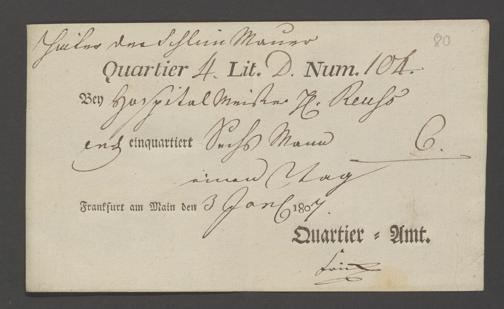 80
hinter der Schlim Mauer
Quartier 4. Lit. D. Num. 104.
Bey Hospital Meister H. Reuss
einquartiert Sechs Mann 6.
einen Tag
Frankfurt am Main den 3 1807.
Quartier = Amt.